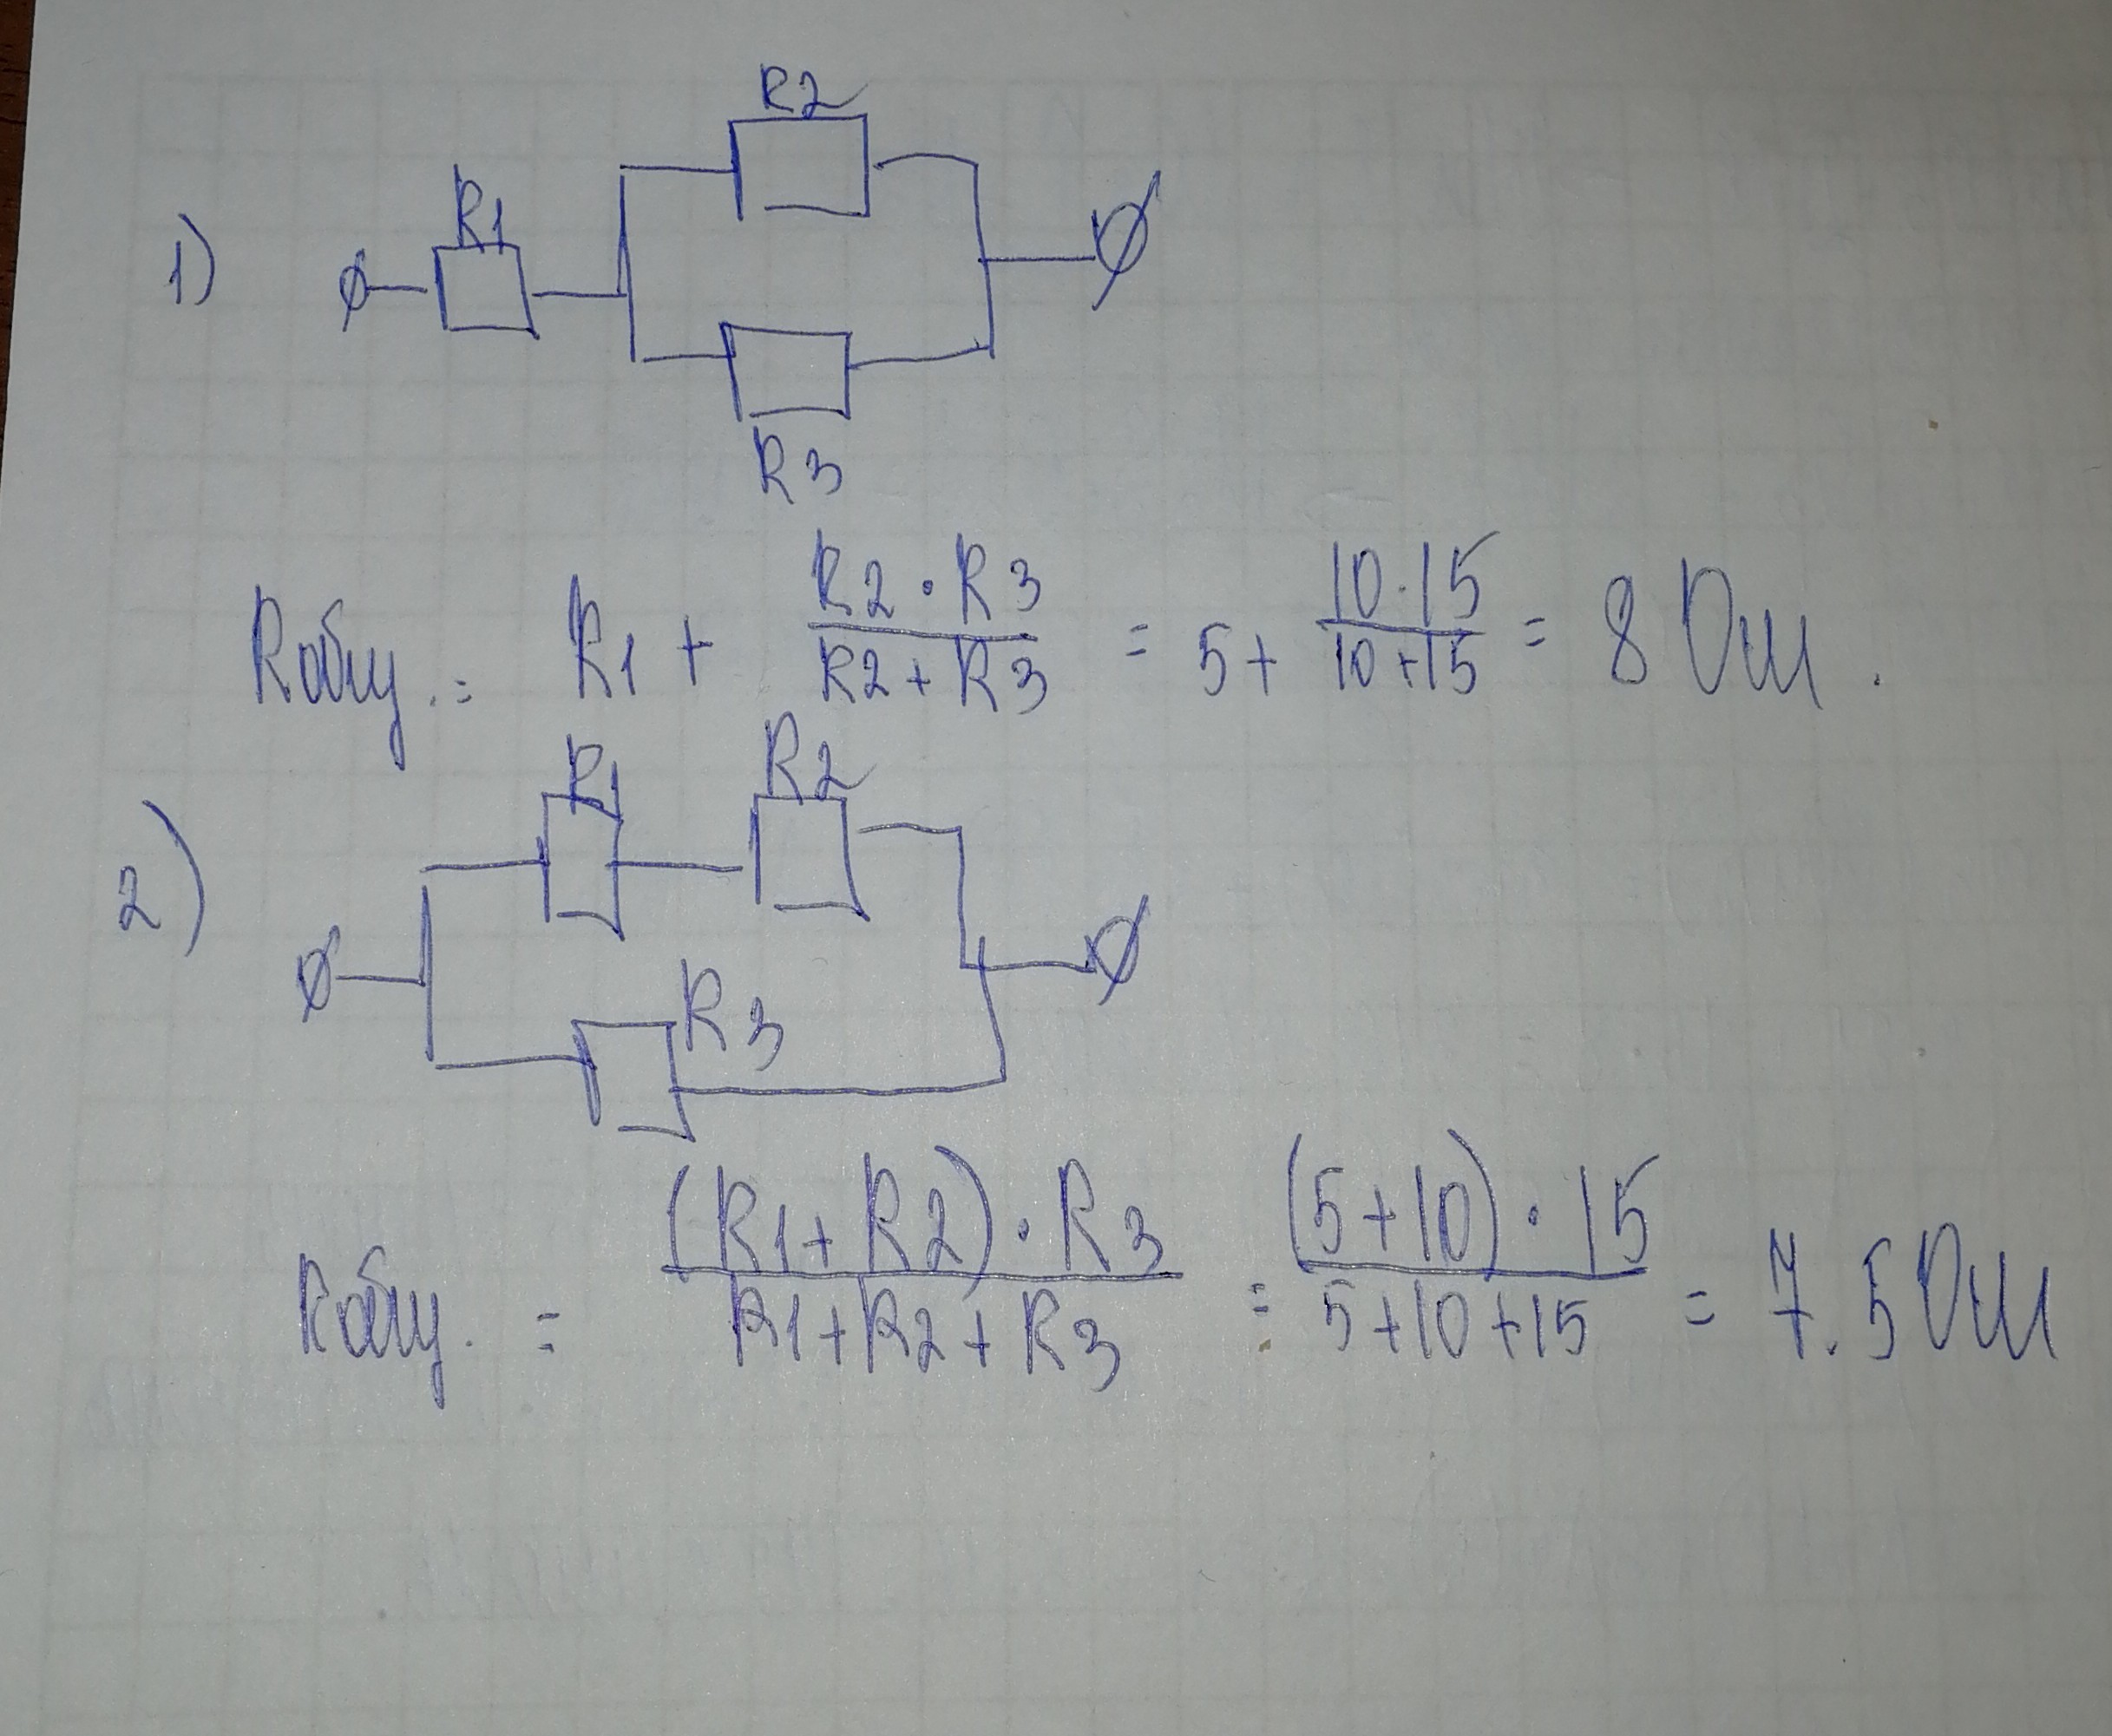 R2
1) R1
R3
Rобщ. = R1 + R2 · R3 / R2 + R3 = 5 + 10 · 15 / 10 + 15 = 8 Ом.
R1 R2
2)
R3
Rобщ. = (R1 + R2) · R3 / R1 + R2 + R3 = (5 + 10) · 15 / 5 + 10 + 15 = 7.5 Ом